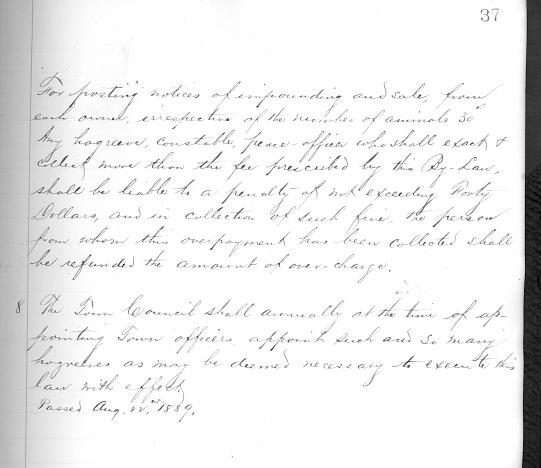 37
For posting notices of impounding and sale, from
each owner, irrespective of the number of animals 30c
Any hogreeve, constable, peace-officer who shall exact &
collect more than the fee prescribed by this By-Law,
shall be liable to a penalty of not exceeding Forty
Dollars, and in collection of such fine, the person
from whom this overpayment has been collected shall
be refunded the amount of over-charge.
8 The Town Council shall annually at the time of ap-
pointing Town officers, appoint such and so many
hogreeves as may be deemed necessary to execute this
law with effect.
Passed Aug. 1889.